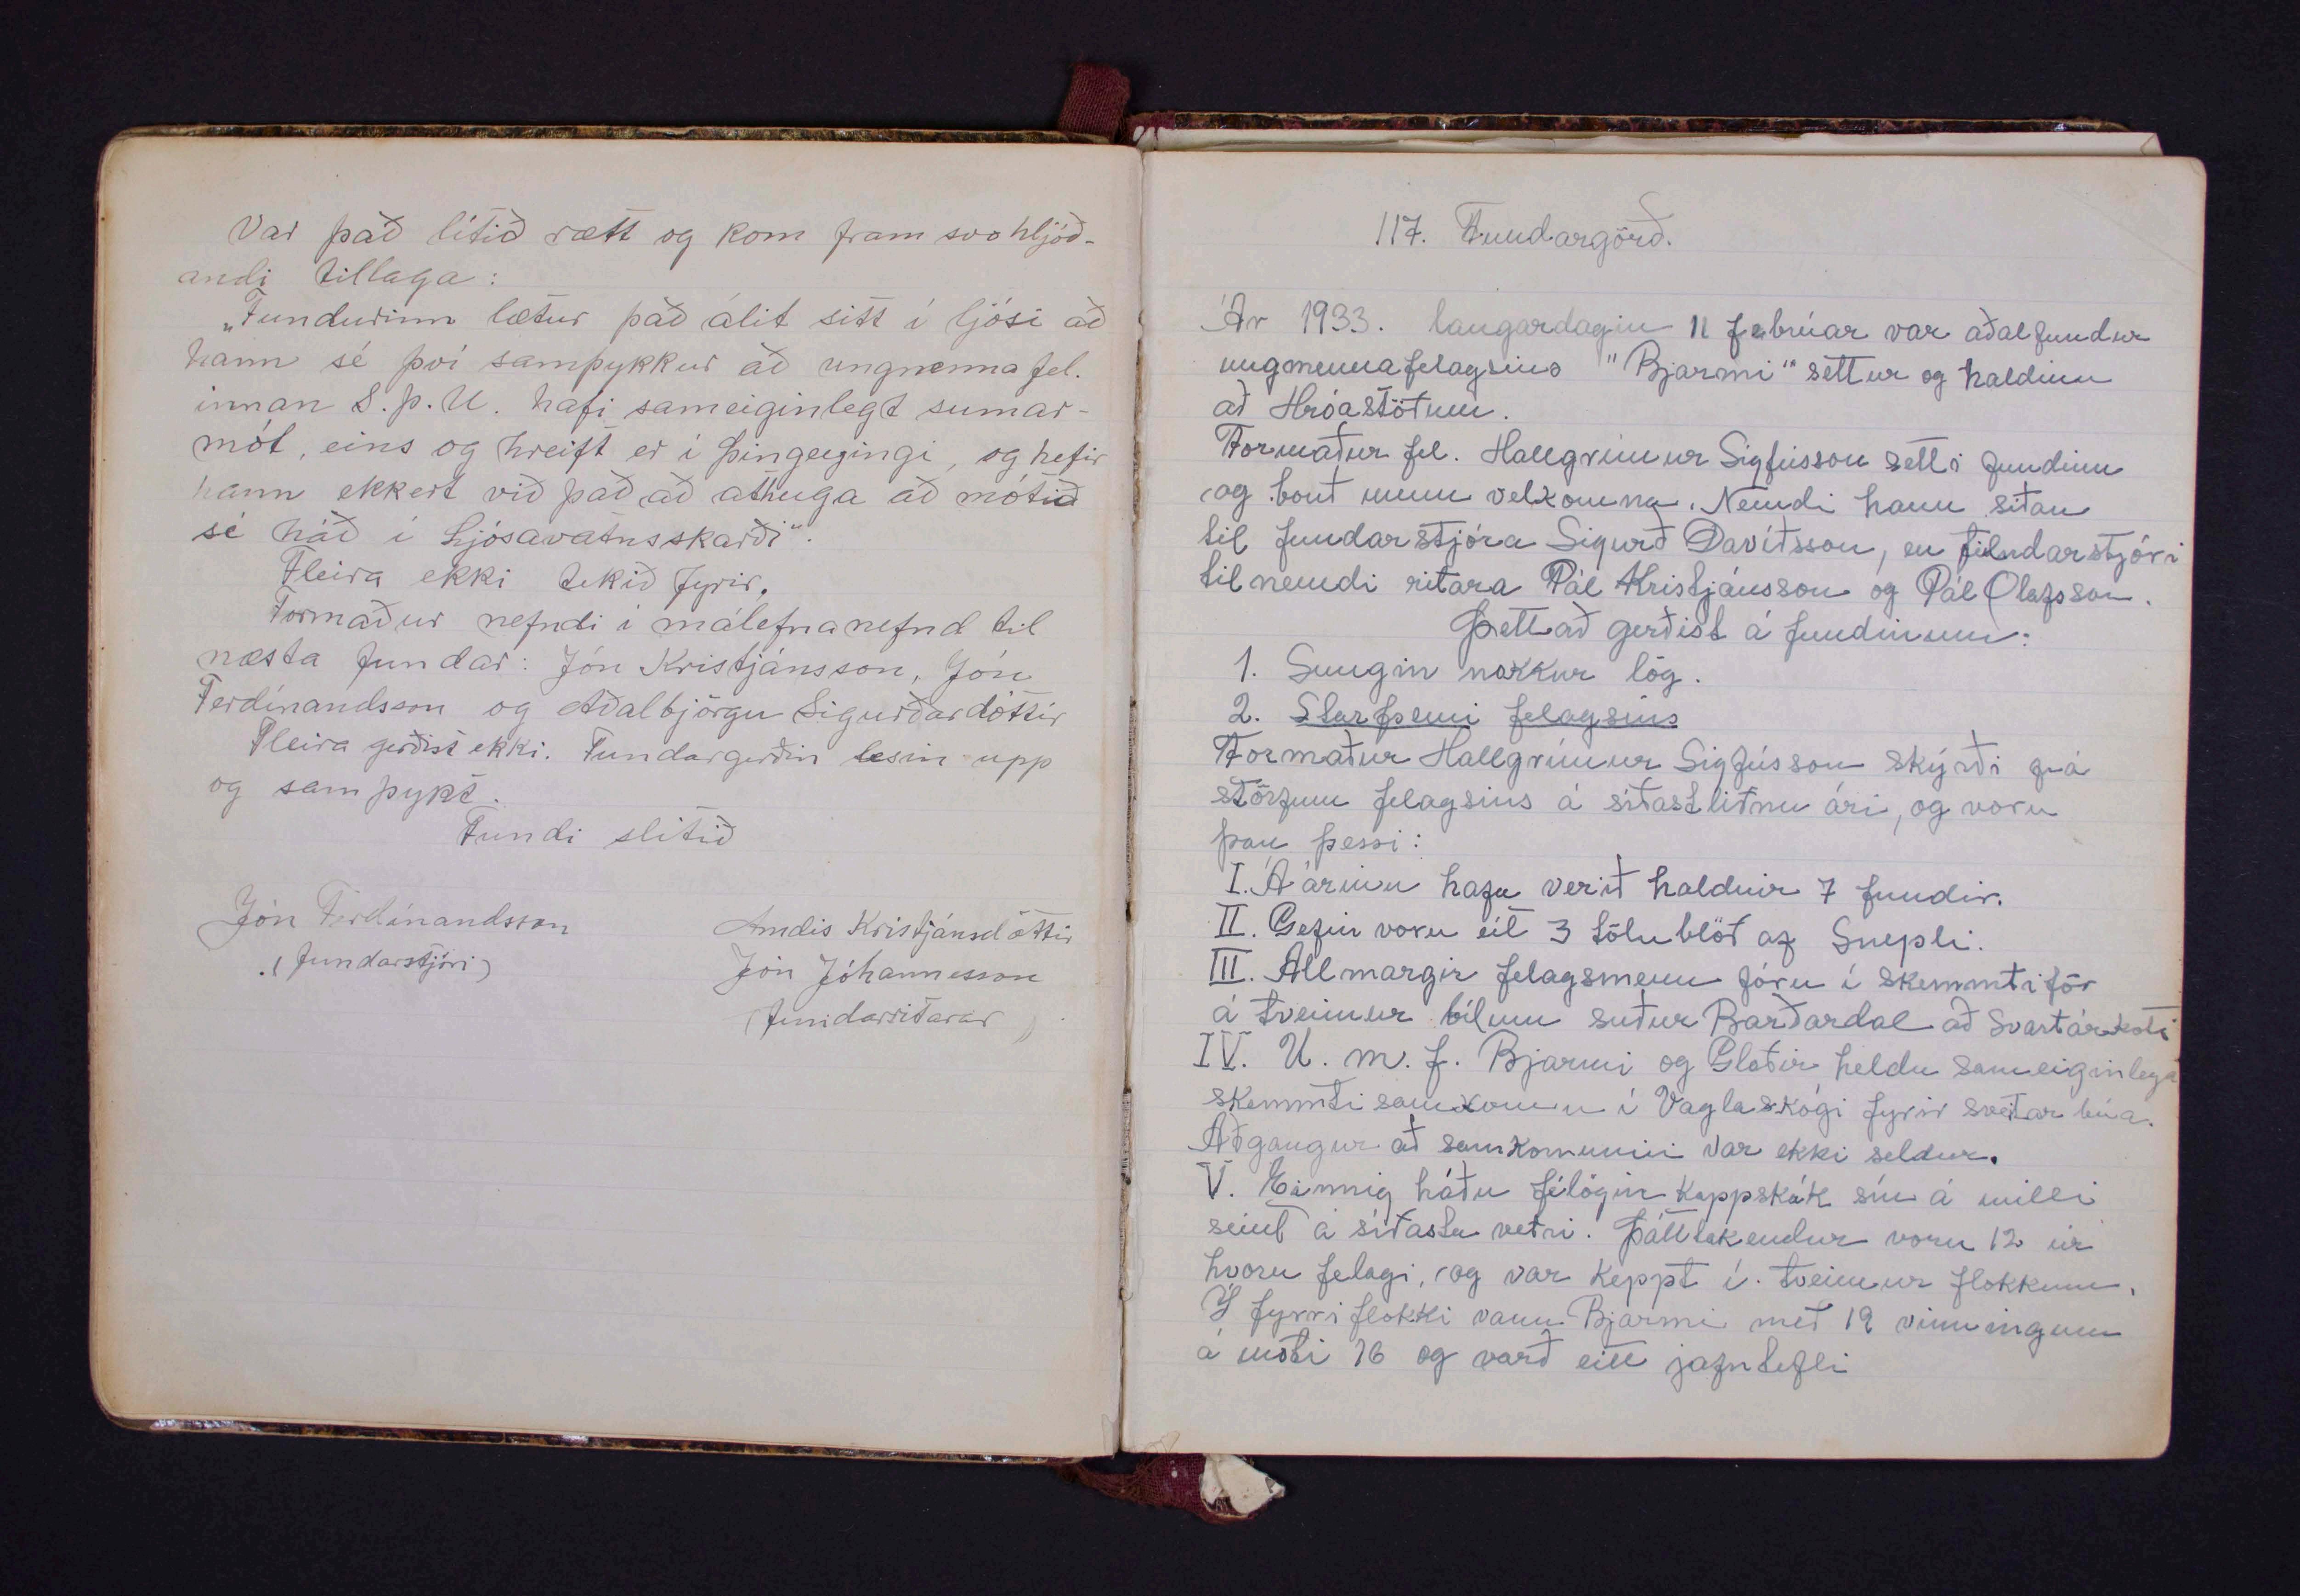 Var það lítið rætt og kom fram svohljóð-
andi tillaga:
„Fundurinn lætur það álit sitt í ljósi að
hann sé því samþykkur að ungmennafel.
innan S.þ.U. hafi sameiginlegt sumar-
mót, eins og hreift er í Þingeyingi, og hefir
hann ekkert við það að athuga að mótið
sé háð í Ljósavatnsskarði“.
Fleira ekki tekið fyrir.
Formaður nefndi í málefnanefnd til
næsta fundar: Jón Kristjánsson, Jón
Ferdínandsson og Aðalbjörgu Sigurðardóttir
Fleira gerðist ekki. Fundargerðin lesin upp
og samþykt.
Fundi slitið
Jón Ferdínandsson
(fundarstjóri)
Arndís Kristjánsdóttir
Jón Jóhannesson
(fundarritarar)
117. Fundargörð.
Ár 1933. laugardagin 11 febrúar var aðalfundur
ungmennafelagsins "Bjarmi" settur og haldinn
að Hróastöðum.
Formaður fel. Hallgrímur Sigfússon setti fundinn
og bauð menn velkomna. Nemdi hann síðan
til fundarstjóra Sigurð Davíðsson, en fundarstjóri
tilnemdi ritara Pál Kristjánsson og Pál Olafsson.
Þettað gerðist á fundinum:
1. Sungin nokkur lög.
2. Starfsemi felagsins
Formaður Hallgrímur Sigfússon skýrði frá
störfum felagsins á síðastliðnu ári, og voru
þau þessi:
I. Á árinu hafa verið haldnir 7 fundir.
II. Gefin voru út 3 tölublöð af Snepli.
III. Allmargir felagsmenn fóru í skemmtiför
á tveimur bílum suður Barðardal að Svartárkoti
IV. U. m. f. Bjarmi og Glaðir heldu sameiginlega
skemmtisamkomu í Vaglaskógi fyrir sveitarbúa.
Aðgangur að samkomunni var ekki seldur.
V. Einnig háðu félögin kappskák sín á milli
seint á síðasta vetri. Þátttakendur voru 12 úr
hvoru felagi, og var keppt í tveimur flokkum.
Í fyrri flokki vann Bjarmi með 19 vinningum
á móti 16 og varð eitt jafntefli